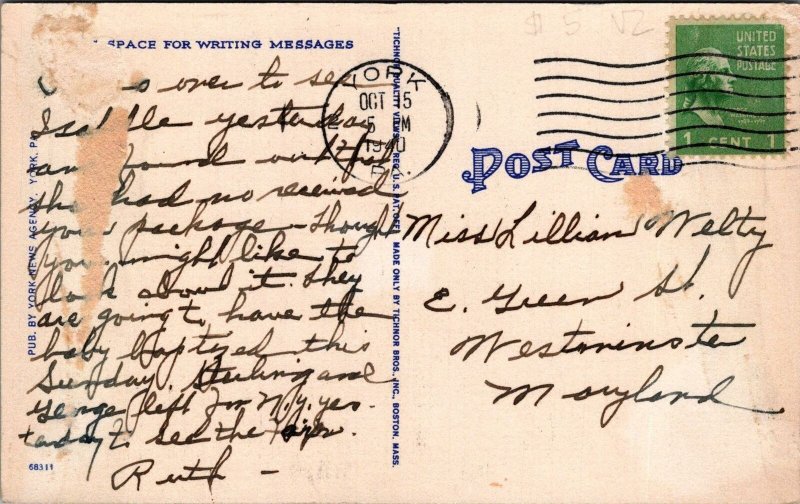 SPACE FOR WRITING MESSAGES
was over to see
Isabelle yesterday
and found out that
she had no received
your package - thought
you might like to
look about it. They
are going to have the
baby baptized this
Sunday. Sterling and
George left for N.Y. yes-
terday to see the Fair.
Ruth -
PUB. BY YORK NEWS AGENCY, YORK, PA.
68311
"TICHNOR QUALITY VIEWS," REG. U.S. PAT. OFF. MADE ONLY BY TICHNOR BROS., INC., BOSTON, MASS.
YORK
OCT 15
5 PM
1940
PA.
$5 V2
UNITED
STATES
POSTAGE
1 CENT 1
POST CARD
Miss Lillian Welty
E. Green St.
Westminster
Maryland